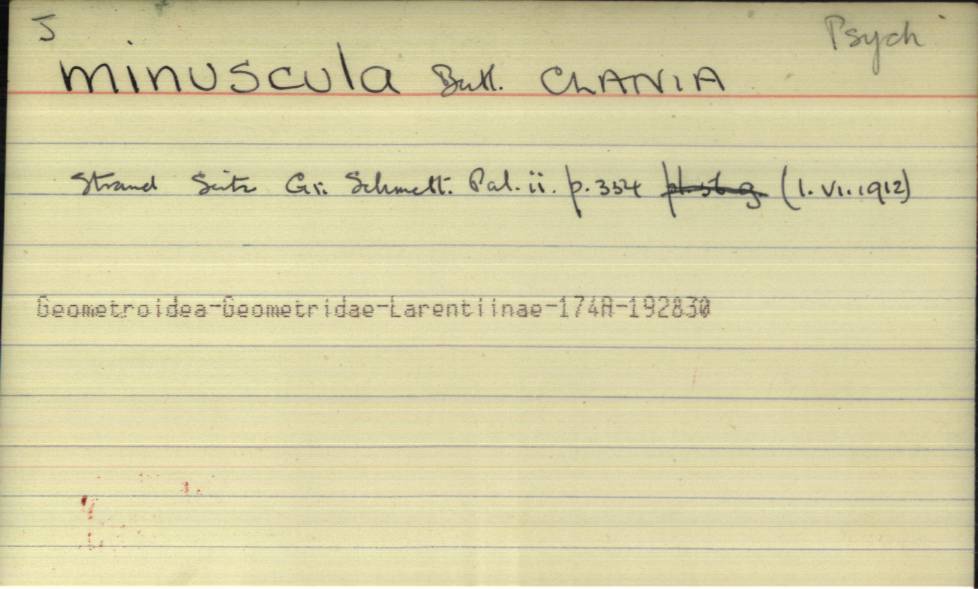 J Psych
minuscula Butl. CLANIA
Strand Seitz Gr. Schmett. Pal. ii. p. 354 (1. VI. 1912)
Geometroidea-Geometridae-Larentiinae-174A-192830